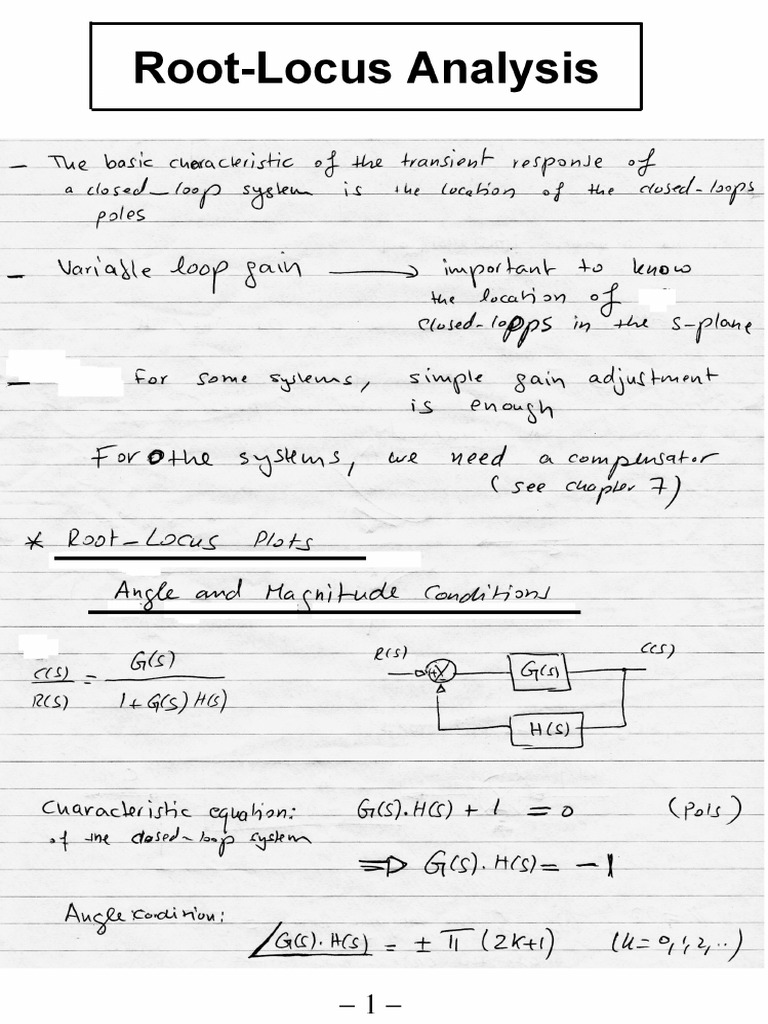 Root-Locus Analysis
– The basic characteristic of the transient response of
a closed-loop system is the location of the closed-loops
poles
– Variable loop gain ⟶ important to know
the location of
closed-lopps in the s-plane
– For some systems, simple gain adjustment
is enough
For othe systems, we need a compensator
(see chapter 7)
* Root-Locus Plots
Angle and Magnitude Conditions
C(s)/R(s) = G(s)/(1+G(s)H(s))
R(s) + G(s) C(s)
H(s)
Characteristic equation: G(s).H(s) + 1 = 0 (Pols)
of the closed-loop system
⇒ G(s).H(s) = -1
Angle condition:
∠G(s).H(s) = ± π (2k+1) (k=0,1,2,..)
– 1 –